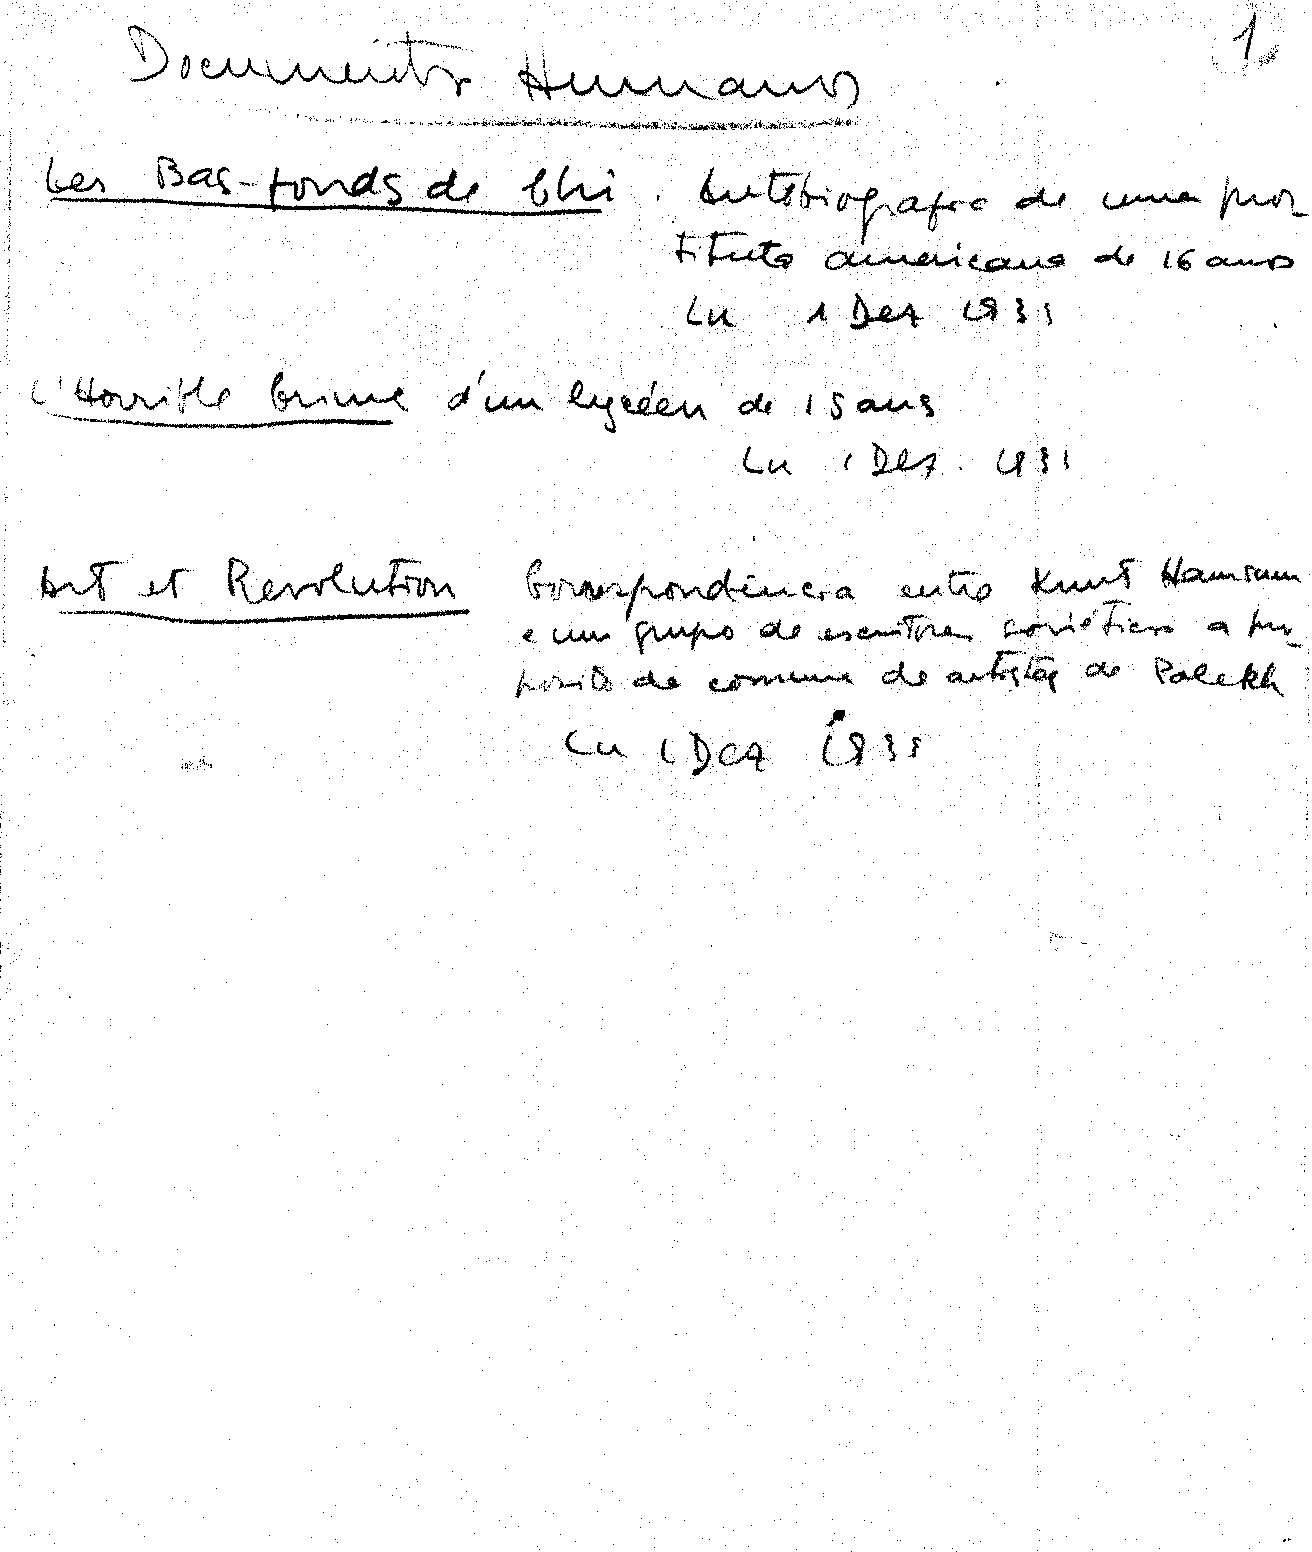 1.
Documentos Humanos
Les Bas-fonds de Chi. Autobiografia de uma pros
tituta americana de 16 anos
Lu 1 Dez 1931
L'Horrible Crime d'un lycéen de 15 ans
Lu 1 Dez. 1931
Art et Revolution Correspondência entre Knut Hamsum
e um grupo de escritores soviéticos a pro-
posito da comuna de artistas de Palekh
Lu 1 Dez 1931